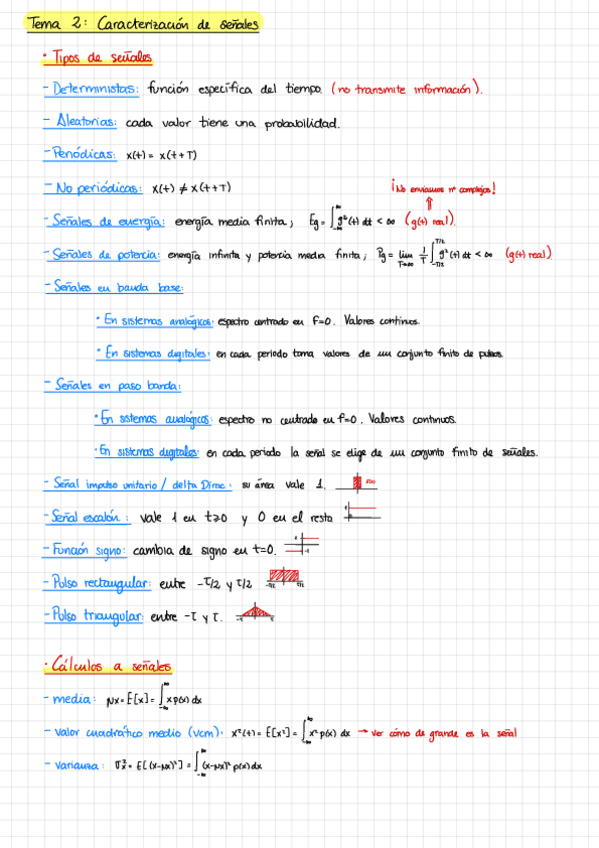 Tema 2: Caracterización de señales
· Tipos de señales
- Deterministas: función específica del tiempo. (no transmite información).
- Aleatorias: cada valor tiene una probabilidad.
- Periódicas: x(t) = x(t+T)
- No periódicas: x(t) ≠ x(t+T)
¡No enviamos nº complejos!
- Señales de energía: energía media finita; Eg = ∫_{-∞}^{∞} g²(t) dt < ∞ (g(t) real).
- Señales de potencia: energía infinita y potencia media finita; Pg = lim_{T→∞} 1/T ∫_{-T/2}^{T/2} g²(t) dt < ∞ (g(t) real)
- Señales en banda base:
· En sistemas analógicos: espectro centrado en f=0. Valores continuos.
· En sistemas digitales: en cada periodo toma valores de un conjunto finito de pulsos.
- Señales en paso banda:
· En sistemas analógicos: espectro no centrado en f=0. Valores continuos.
· En sistemas digitales: en cada periodo la señal se elige de un conjunto finito de señales.
- Señal impulso unitario / delta Dirac: su área vale 1.
- Señal escalón: vale 1 en t≥0 y 0 en el resto
- Función signo: cambia de signo en t=0. -1
- Pulso rectangular: entre -τ/2 y τ/2 -τ/2 τ/2
- Pulso triangular: entre -τ y τ. -τ τ
· Cálculos a señales
- media: μx = E[x] = ∫_{-∞}^{∞} x p(x) dx
- valor cuadrático medio (vcm): x²(t) = E[x²] = ∫_{-∞}^{∞} x² p(x) dx → ver cómo de grande es la señal
- varianza: σx² = E[(x-μx)²] = ∫_{-∞}^{∞} (x-μx)² p(x) dx